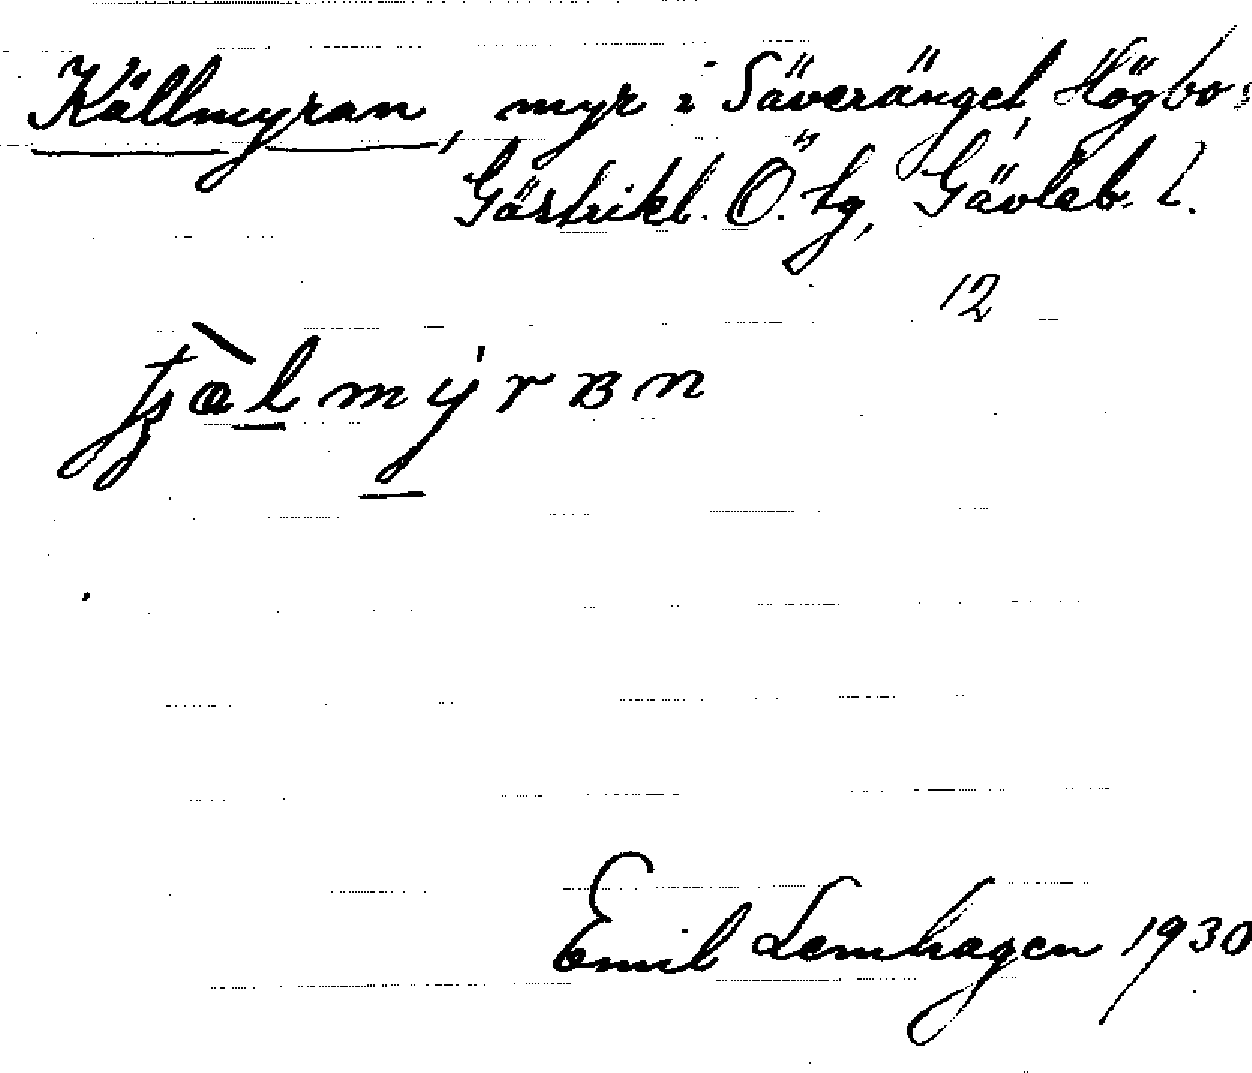 Källmyran, myr i Säverängel, Högbo s
Gästrikl. Ö. tg, Gävleb. l.
12
Emil Lemhagen 1930